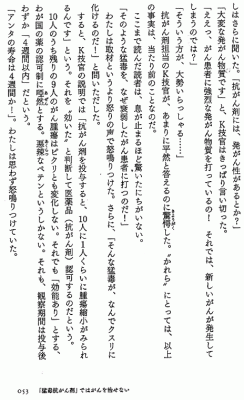 しはさらに聞いた。「抗がん剤には、発がん性があるとか?」
「大変な発がん物質です」と、K技官もきっぱり言い切った。
「ええっ、がん患者に強烈な発がん物質を打っているの! それでは、新しいがんが発生して
しまうのでは?」
「そういう方が、大勢いらっしゃる……」
抗がん剤担当のK技官が、あまりに平然と答えるのに驚愕した。〝かれら〟にとっては、以上
の事実は、当たり前のことなのだ。
ここまで読んだ読者は、息が止まるほど驚いたにちがいない。
「そのような猛毒を、なぜ衰弱したがん患者に打つのだ!」
わたしは取材というより怒りの声で怒鳴りつけた。さらに、「そんな猛毒が、なんでクスリに
化けるのだ!」と問いただした。
すると、K技官の説明では「抗がん剤を投与すると、10人に1人くらいに腫瘍縮小がみられ
るんです」という。それを〝効いた〟と判断して医薬品(抗がん剤)認可するのだという。
10人のうち残りの9人のがん腫瘍はピクリとも変化しない。それでも「効能あり」とする、
わが国の薬の認可制に愕然とする。悪辣なペテンというしかない。それも、観察期間は投与後
わずか「4週間以内」だという。
「アンタの寿命は4週間か―」。わたしは思わず怒鳴りつけていた。
053 「猛毒抗がん剤」ではがんを治せない